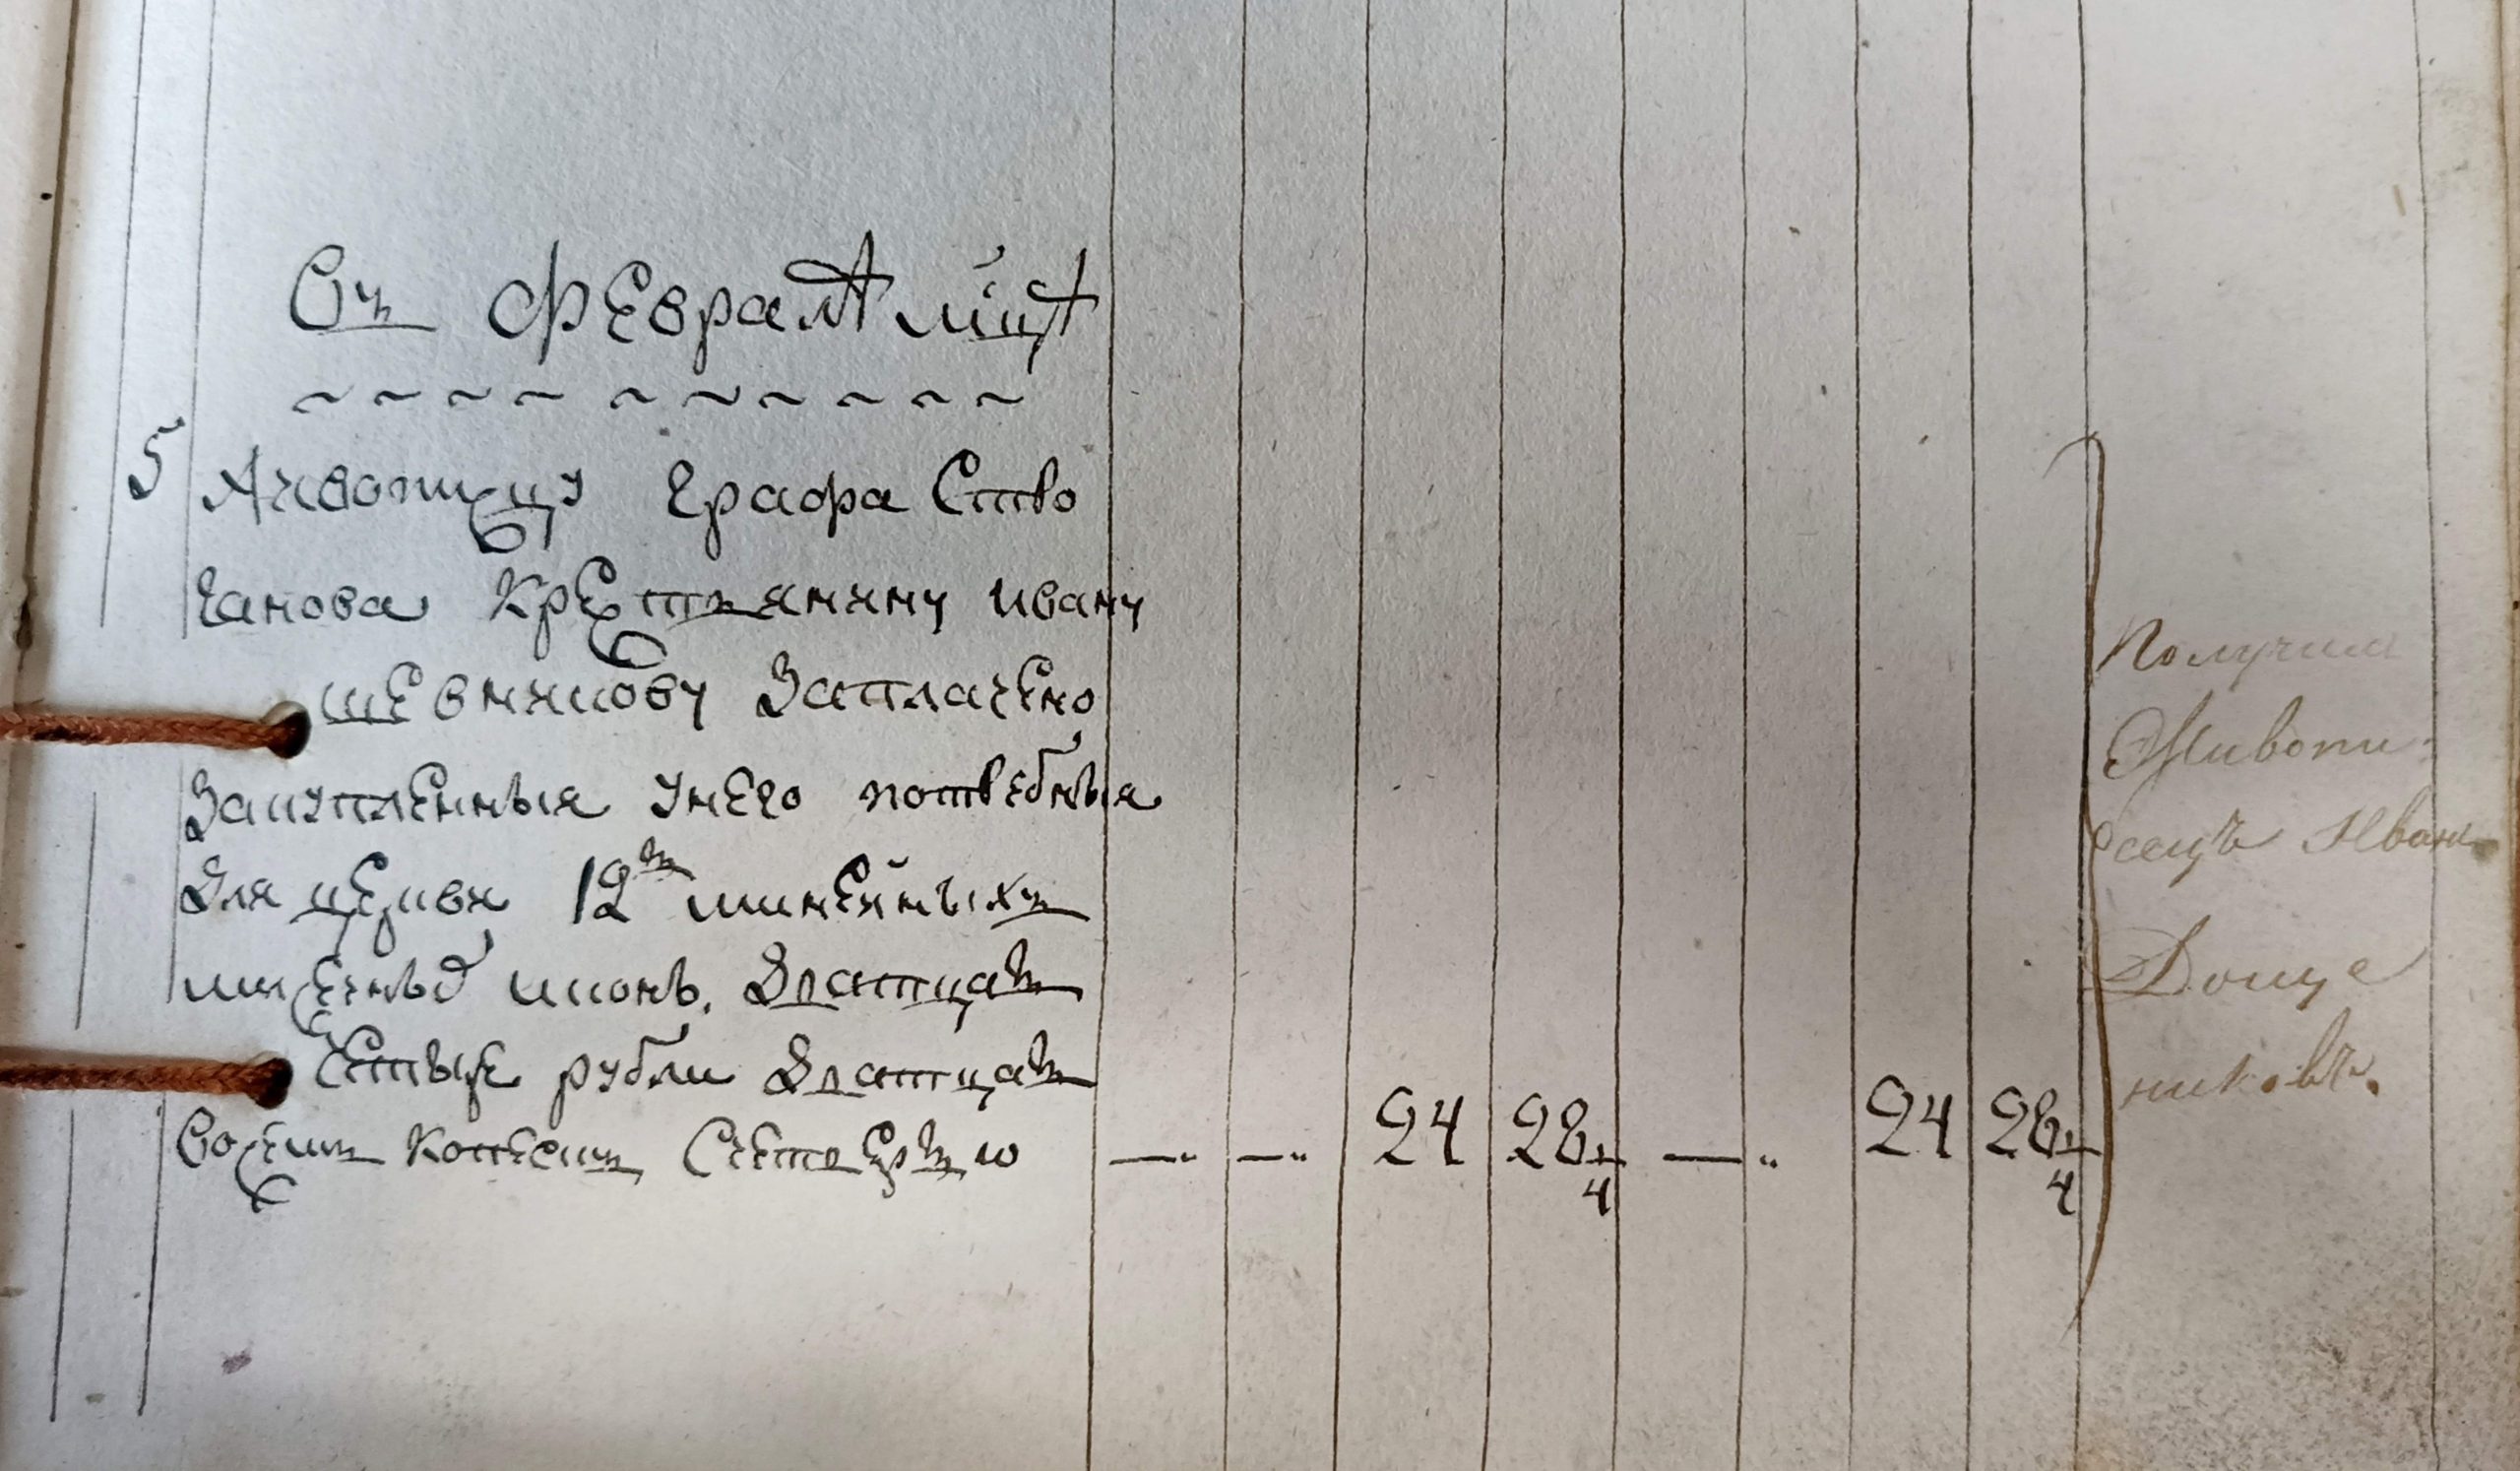 Съ февраля м҃ца
5 Живописцу Графа Стро
ганова крестьянину ивану
заплачено
Закупленныя унего потребныя
Для церкви 12ть минейныхъ
месечныхъ иконъ. Дватцать
четыре рубли Дватцать
восемь копеекъ Счетвертью — „ — „ 24 28 1/4 — „ 24 28 1/4
Получил
Живопи-
сецъ Иванъ
Доще
никовъ.